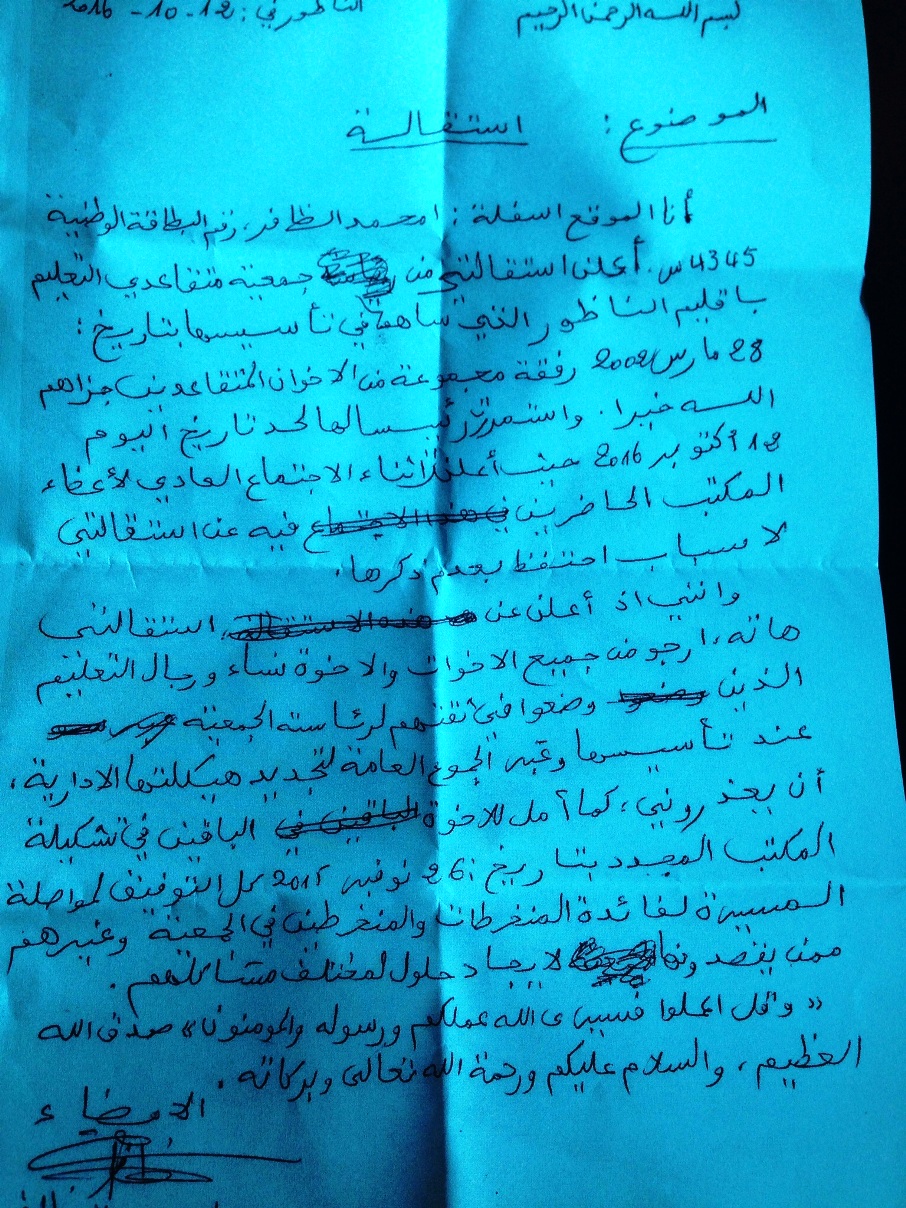 بسم الله الرحمن الرحيم
الناظور في: 12-10-2016
الموضوع: استقالة
أنا الموقع اسفلة: امحمد الظافر، رقم البطاقة الوطنية
4345 س. أعلن استقالتي من جمعية متقاعدي التعليم
باقليم الناظور التي ساهمت في تأسيسها بتاريخ:
28 مارس 2002 رفقة مجموعة من الاخوان المتقاعدين جزاهم
الله خيرا. واستمررت رئيسا لها لحد تاريخ اليوم
12 أكتوبر 2016 حيث أعلنت أثناء الاجتماع العادي لأعضاء
المكتب الحاضرين في هذا الاجتماع فيه عن استقالتي
لاسباب احتفظ بعدم ذكرها.
وانني اذ أعلن عن هذه الاستقالة، استقالتي
هاته، ارجو من جميع الاخوات والاخوة نساء ورجال التعليم
الذين وضعوا وضعوا في ثقتهم لرئاسة الجمعية
عند تأسيسها وعبر الجموع العامة لتجديد هيكلتها الادارية،
أن يعذروني، كما آمل للاخوة الباقين في الباقين في تشكيلة
المكتب المجدد بتاريخ: 26 نوفبر 2015 كل التوفيق لمواصلة
المسيرة لفائدة المنخرطات والمنخرطين في الجمعية وغيرهم
ممن يقصدونها لايجاد حلول لمختلف مشاكلهم.
« وقل اعملوا فسيرى الله عملكم ورسوله والمومنون» صدق الله
العظيم، والسلام عليكم ورحمة الله تعالى وبركاته.
الامضاء